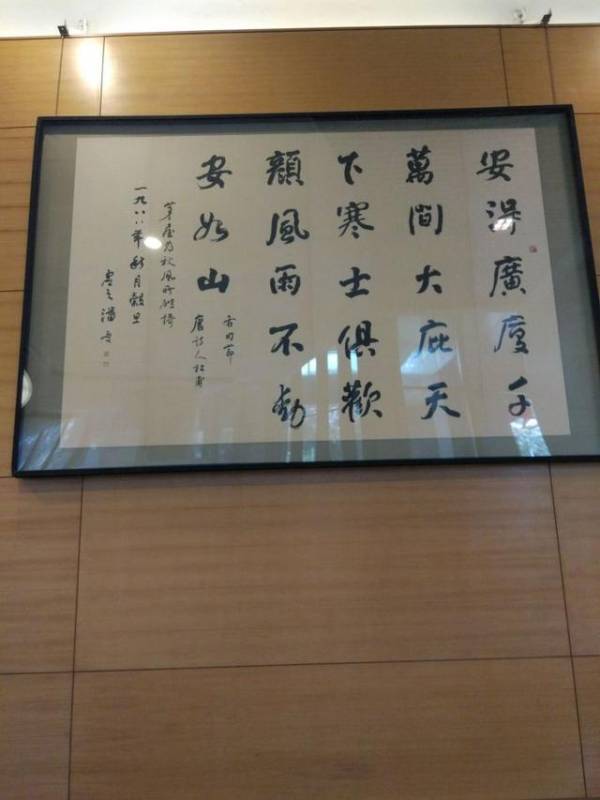 安得廣廈千
萬間大庇天
下寒士俱歡
顏風雨不動
安如山
右句節
唐詩人杜甫
茅屋為秋風所破
一九八八年秋月穀旦
虛之潘受